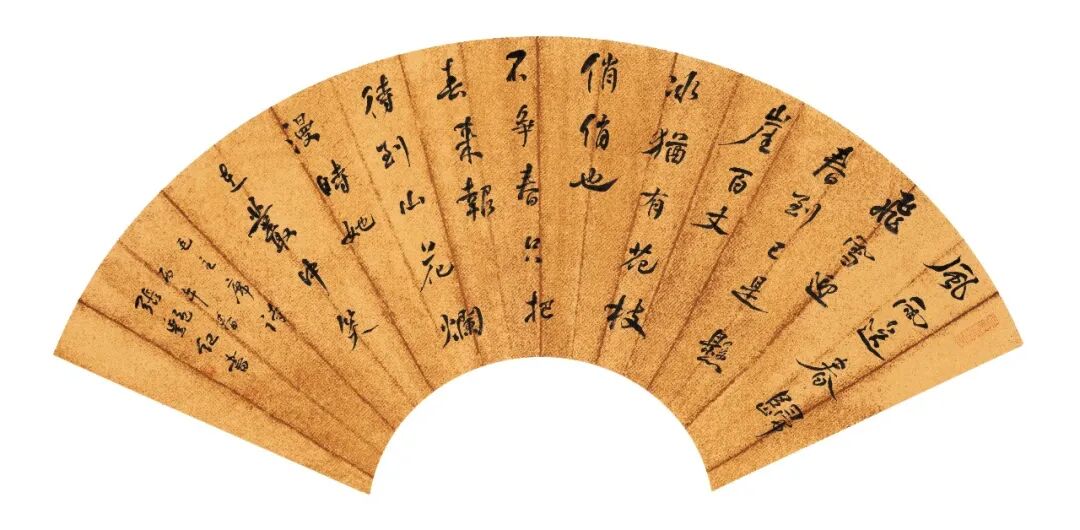 風雨送春歸
飛雪迎
春到已是懸
崖百丈
冰猶有花枝
俏俏也
不争春只把
春來報
待到山花爛
漫時她
在叢中笑
毛主席詩
丙午春
張艷紅書